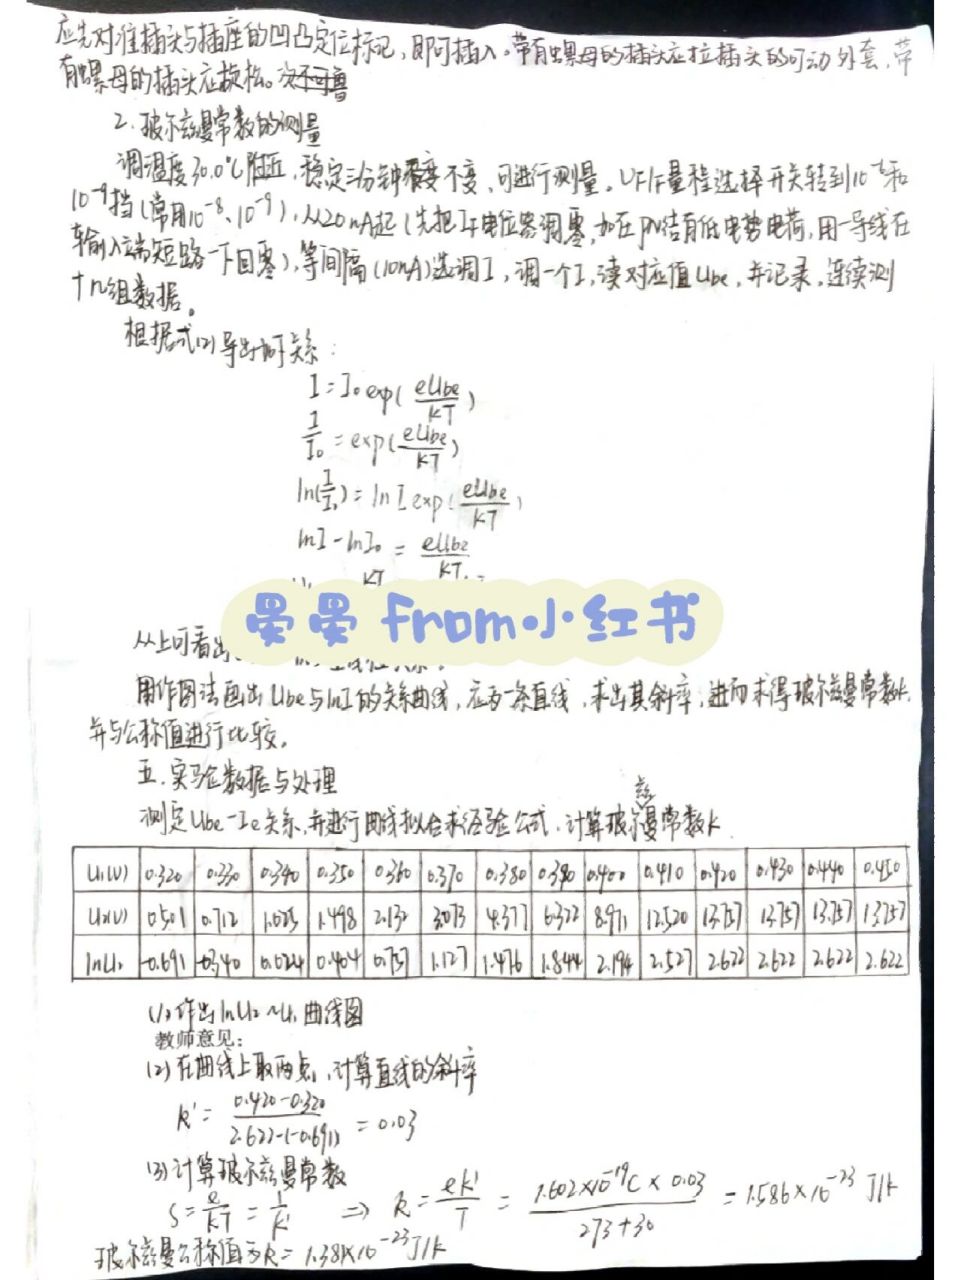 应先对准插头与插座的凹凸定位标记，即可插入。带有螺母的插头应拉插头的可动外套，带
有螺母的插头应旋松。
2. 玻尔兹曼常数的测量
调温度30.0℃附近，稳定三分钟 不变，可进行测量。 量程选择开关转到 和
10⁻⁹挡(常用10⁻⁸、10⁻⁹)，从20nA起(先把 电位器调零，如在PN结有低电势电荷，用一导线在
输入端短路一下回零)，等间隔(10nA)选调I，调一个I，读对应值Ube，并记录，连续测
十n组数据。
根据式(2)导出 关系：
I = I₀ exp( eUbe/KT )
I/I₀ = exp( eUbe/KT )
ln(I/I₀) = ln I exp( eUbe/KT )
lnI - lnI₀ = eUbe/KT
KT
从上可看出
晏晏 From小红书
用作图法画出Ube与lnI的关系曲线，应为一条直线，求出其斜率，进而求得玻尔兹曼常数k，
并与公称值进行比较。
五.实验数据与处理
测定Ube-Ic关系，并进行曲线拟合求经验公式，计算玻尔兹曼常数K.
U₁(V) 0.320 0.330 0.340 0.350 0.360 0.370 0.380 0.390 0.400 0.410 0.420 0.430 0.440 0.450
U₂(V) 0.501 0.712 1.023 1.498 2.132 3.073 4.377 6.322 8.971 12.520 13.757 13.757 13.757 13.757
lnU₂ -0.691 -0.340 0.024 0.404 0.757 1.127 1.476 1.844 2.194 2.527 2.622 2.622 2.622 2.622
(1)作出lnU₂~U₁曲线图
教师意见:
(2)在曲线上取两点，计算直线的斜率
k' = (0.420-0.320)/(2.622-(-0.691)) = 0.03
(3)计算玻尔兹曼常数
S = e/KT = 1/k' ⇒ k = ek'/T = (1.602×10⁻¹⁹C × 0.03)/(273+30) = 1.586×10⁻²³ J/K
玻尔兹曼公称值为k = 1.381×10⁻²³J/K